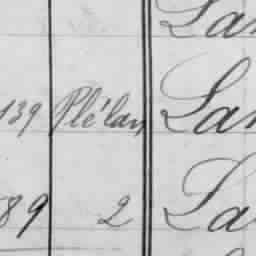 Lan
139 Plélan Lan
89 2 La